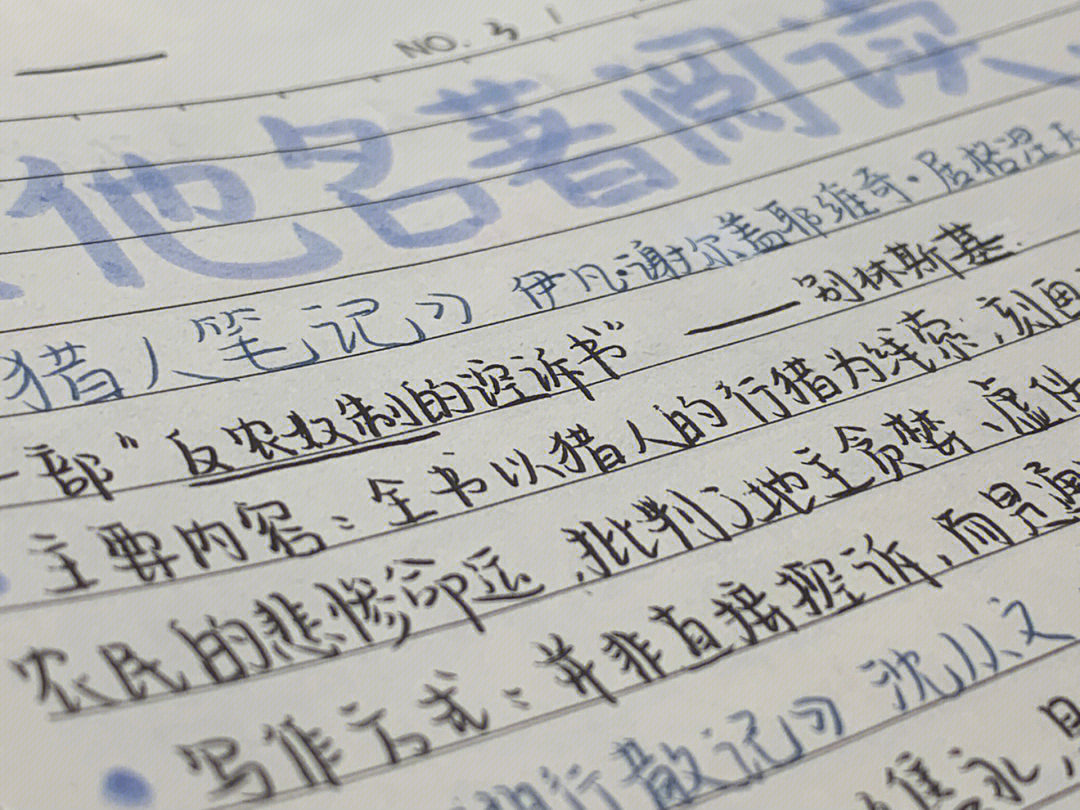 NO. 3
他名著阅读
猎人笔记》 伊凡·谢尔盖耶维奇·屠格涅夫
一部"反农奴制的控诉书" ——别林斯基
主要内容:全书以猎人的行猎为线索,刻画
农民的悲惨命运,批判了地主贪婪、虚伪
写作方式:并非直接控诉,而是通
行散记》 沈从文